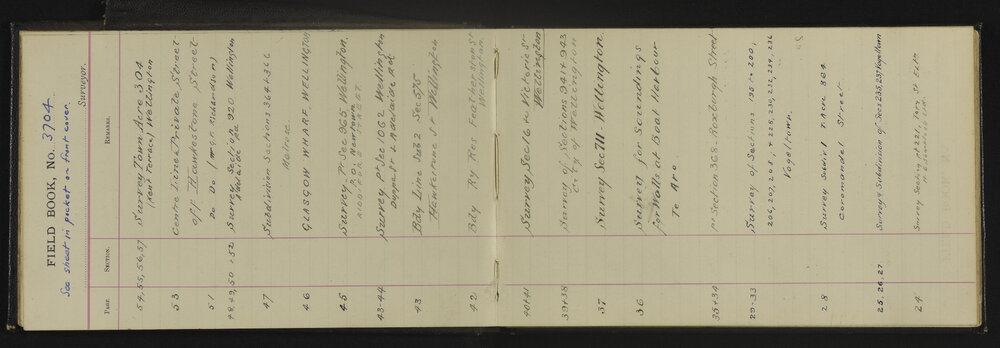 FIELD BOOK, No. 3704
See sheet in pocket on front cover.
Surveyor.
PAGE. SECTION. REMARKS.
54, 55, 56, 57 Survey Town Acre 304
(Kent Terrace) Wellington
53 Centre Line & Private Street
off Hawkestone Street
51 Do Do (
48, 49, 50 & 52 Survey Section 920 Wellington
47 Subdivision Sections 364 & 366
46 GLASGOW WHARF WELLINGTON
45 Survey Pt Sec 965 Wellington.
Newtown
43-44 Survey Pt Sec 1062 Wellington
Adelaide Rd
43 Bdy Line Sub 2 Sec 575
Hawkestone St Wellington
42 Bdy Ry Res Featherston St
Wellington
40+41 Survey Sec 16 Victoria St
Wellington
39+38 Survey of Sections 941 + 943
City of Wellington
37 Survey Sec 711 Wellington
36 Survey for Soundings
for Walls at Boat Harbour
Te Aro
35+34 Pt Section 368 Roxburgh Street
29-33 Survey of Sections 195 to 200,
206, 207, 208, & 228, 230, 232, 234, 236
Vogeltown.
28 Survey Subdivn T. Acre 304
Coromandel Street
25, 26, 27 Survey Subdivision of Secs 235, 237 Vogeltown
24 Survey Section pt 221,